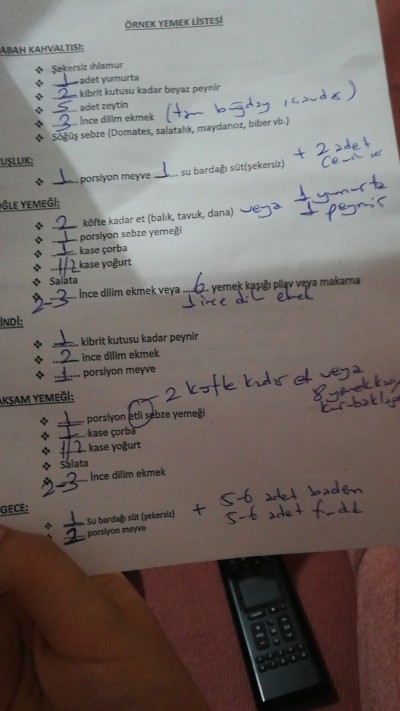 ÖRNEK YEMEK LİSTESİ
ABAH KAHVALTISI:
Şekersiz ıhlamur
1 adet yumurta
2 kibrit kutusu kadar beyaz peynir
5 adet zeytin
3 İnce dilim ekmek (tam buğday
Söğüş sebze (Domates, salatalık, maydanoz, biber vb.)
UŞLUK:
1 porsiyon meyve 1 su bardağı süt(şekersiz) + 2 adet
ceviz
ĞLE YEMEĞİ:
2 köfte kadar et (balık, tavuk, dana) veya 1 yumurta
1 peynir
1 porsiyon sebze yemeği
1 kase çorba
1/2 kase yoğurt
Salata
2-3 İnce dilim ekmek veya 6 yemek kaşığı pilav veya makarna
1 ince dil ekmek
İNDİ:
1 kibrit kutusu kadar peynir
2 İnce dilim ekmek
1 porsiyon meyve
AKŞAM YEMEĞİ:
2 köfte kadar et veya
8 yemek
kurubakla
1 porsiyon etli sebze yemeği
1 kase çorba
1/2 kase yoğurt
Salata
2-3 İnce dilim ekmek
GECE:
1 Su bardağı süt (şekersiz) + 5-6 adet badem
5-6 adet fındık
2 porsiyon meyve